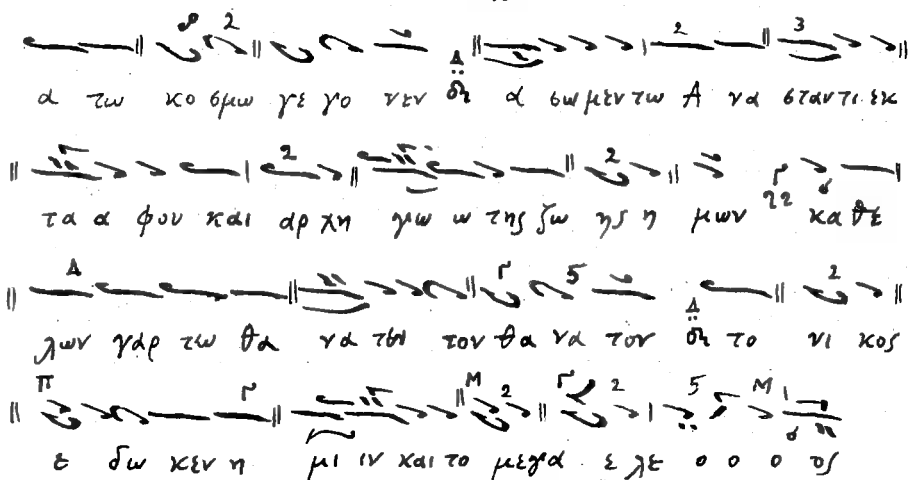 α τω κο σμω γε γο νεν α σω μεν τω Α να σταντι εκ
τα α φου και αρ χη γω ω της ζω ης η μων κα θε
λων γαρ τω θα να τω τον θα να τον το νι κος
ε δω κεν η μι ιν και το μεγα ε λε ο ο ο ος